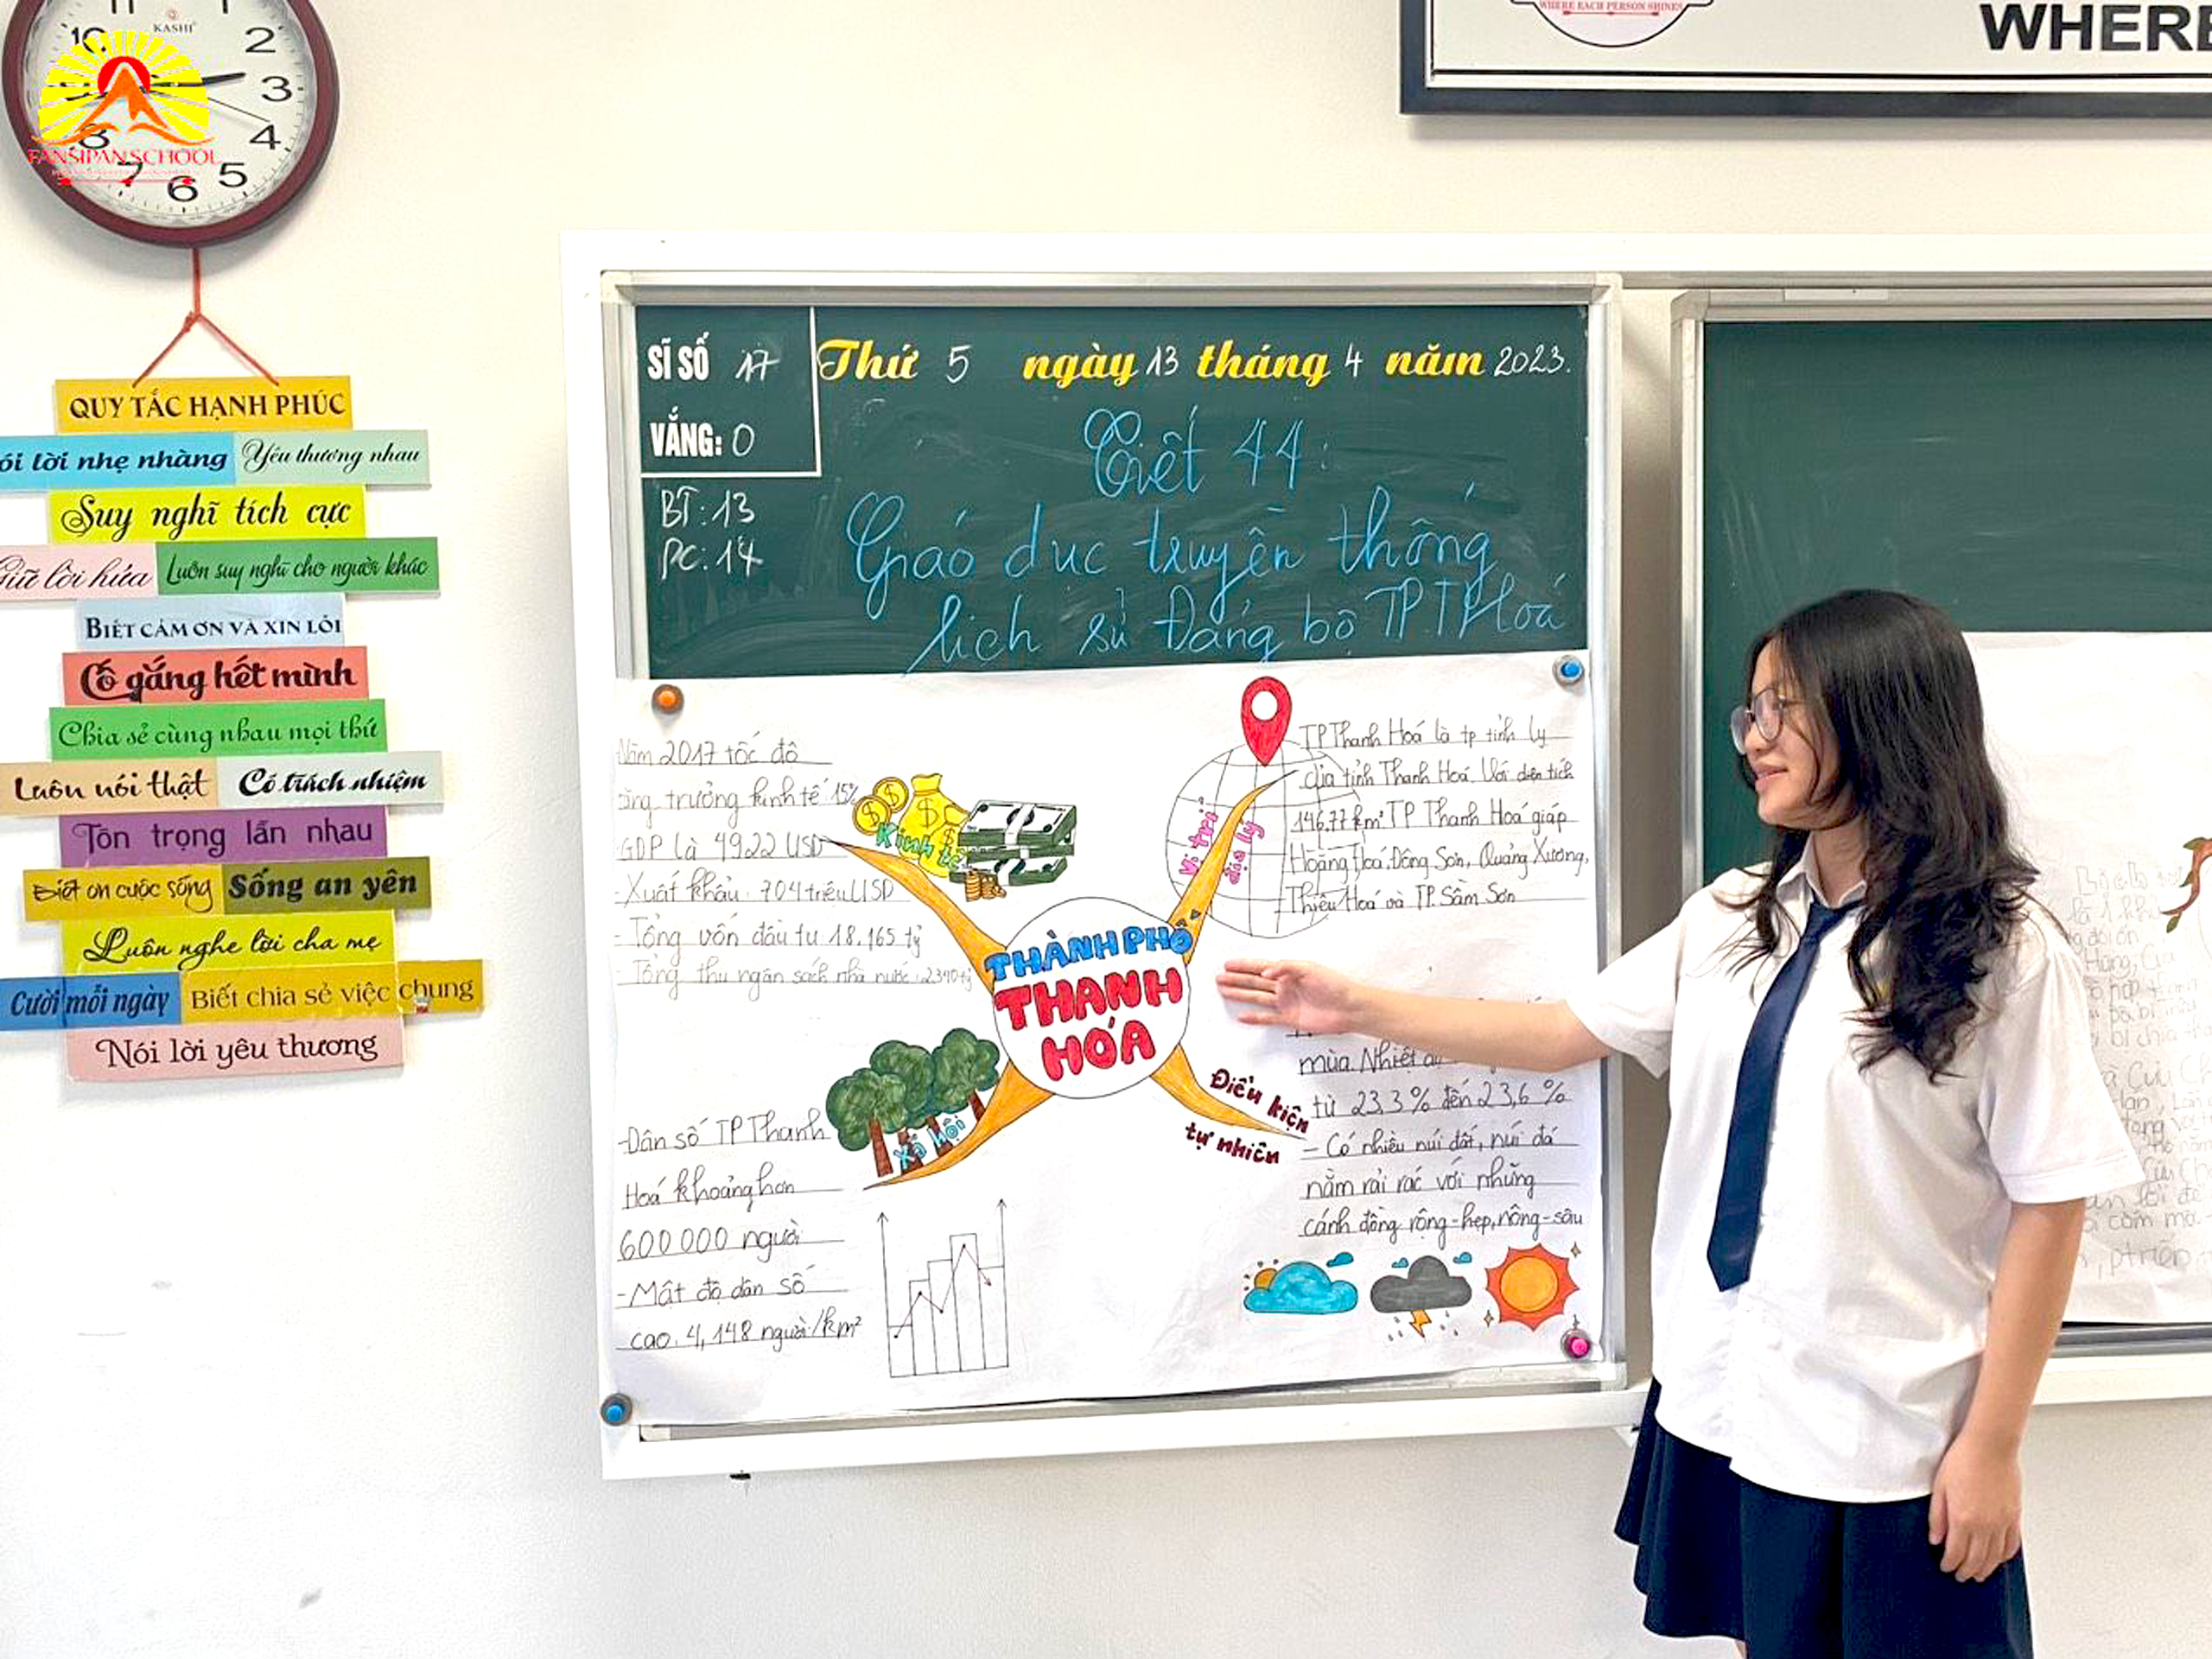 KASHI
10 11 2 3 4 5 6 7 8
FANSIPAN SCHOOL
WHERE EACH PERSON SHINES
WHERE
QUY TẮC HẠNH PHÚC
ói lời nhẹ nhàng Yêu thương nhau
Suy nghĩ tích cực
Giữ lời hứa Luôn suy nghĩ cho người khác
BIẾT CẢM ƠN VÀ XIN LỖI
Cố gắng hết mình
Chia sẻ cùng nhau mọi thứ
Luôn nói thật Có trách nhiệm
Tôn trọng lẫn nhau
Biết ơn cuộc sống Sống an yên
Luôn nghe lời cha mẹ
Cười mỗi ngày Biết chia sẻ việc chung
Nói lời yêu thương
SĨ SỐ 17
VẮNG: 0
BT: 13
PC: 14
Thứ 5 ngày 13 tháng 4 năm 2023.
Tiết 44:
Giáo dục truyền thống
lịch sử Đảng bộ TP.THoá
Năm 2017 tốc độ
tăng trưởng kinh tế 15%
GDP là 4922 USD
- Xuất khẩu: 704 triệu USD
- Tổng vốn đầu tư 18.165 tỷ
- Tổng thu ngân sách nhà nước: 2340 tỷ
Kinh tế
Vị trí
địa lý
TP Thanh Hoá là tp tỉnh lỵ
của tỉnh Thanh Hoá. Với diện tích
146,77 km² TP Thanh Hoá giáp
Hoằng Hoá, Đông Sơn, Quảng Xương,
Thiệu Hoá và TP. Sầm Sơn
THÀNH PHỐ
THANH
HÓA
Xã hội
-Dân số TP Thanh
Hoá khoảng hơn
600000 người
-Mật độ dân số
cao. 4,148 người/km²
Điều kiện
tự nhiên
mùa. Nhiệt
từ 23,3% đến 23,6%
- Có nhiều núi đất, núi đá
nằm rải rác với những
cánh đồng rộng-hẹp, nông-sâu